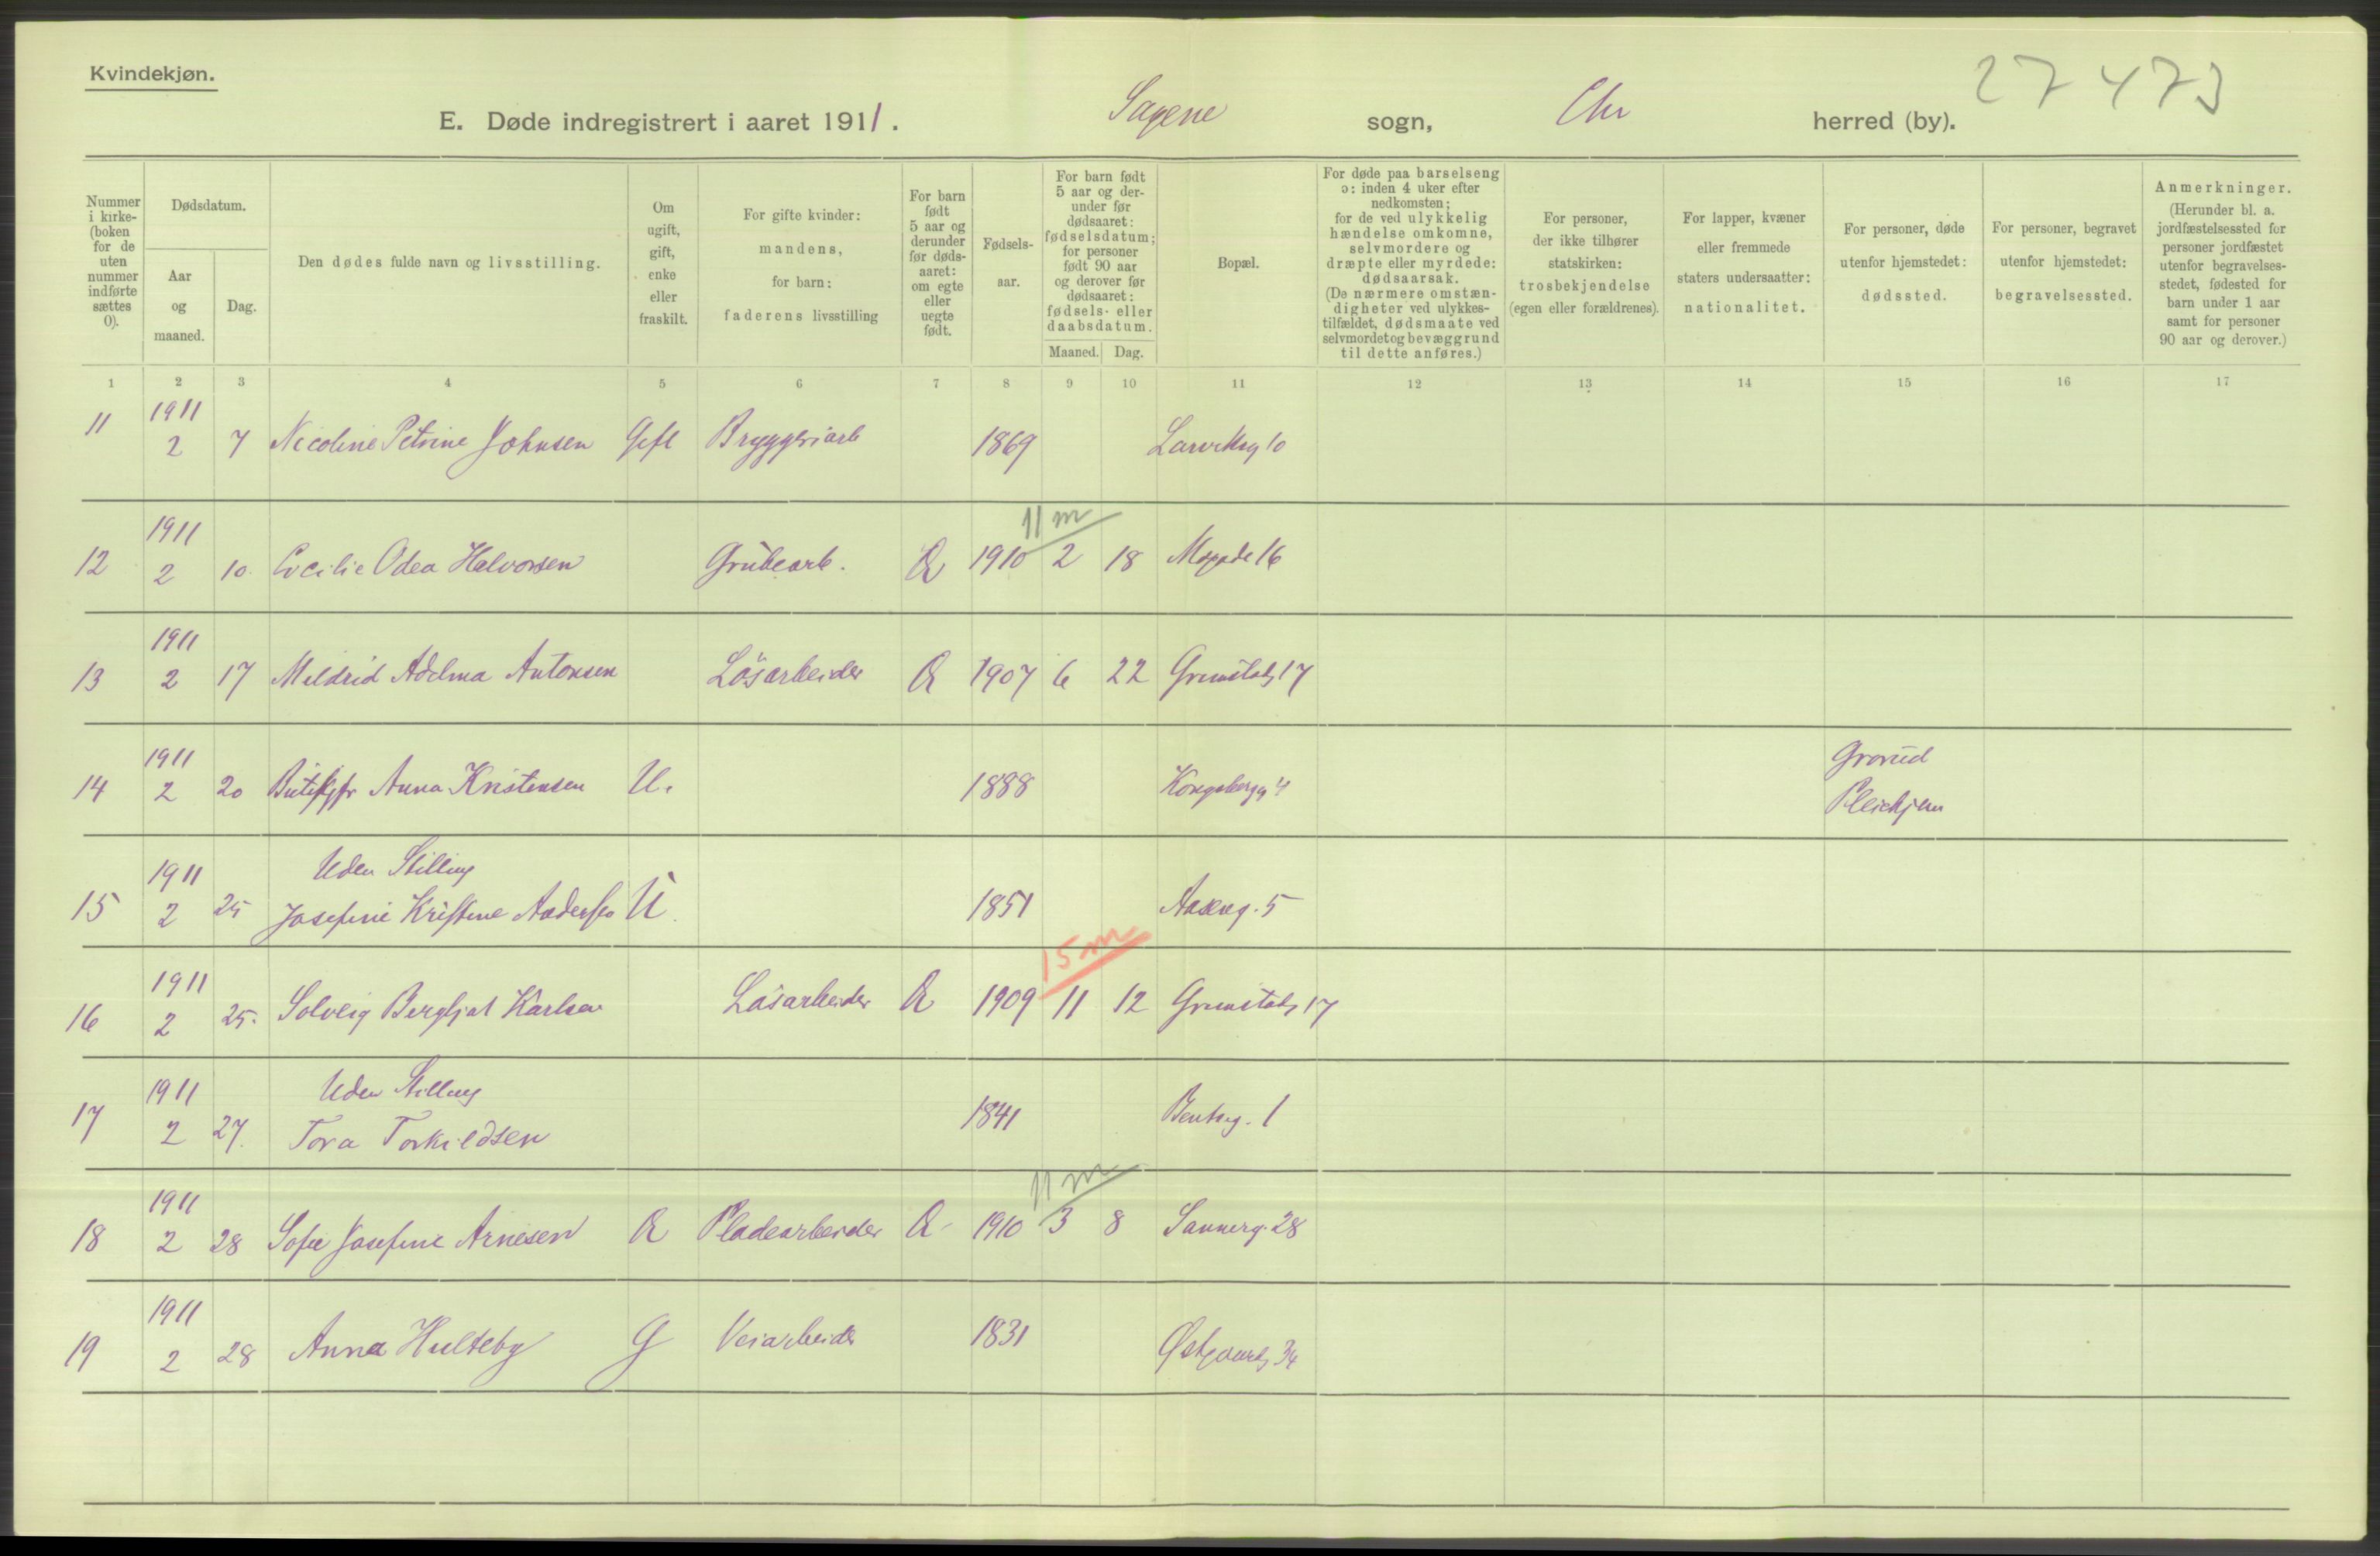 Kvindekjøn.
27473
E. Døde indregistrert i aaret 1911. Sagene sogn, Chr herred (by).
Nummer i kirke-(boken for de uten nummer indførte sættes 0).
Dødsdatum.
Aar og maaned.
Dag.
Den dødes fulde navn og livsstilling.
Om ugift, gift, enke eller fraskilt.
For gifte kvinder: mandens, for barn: faderens livsstilling
For barn født 5 aar og derunder før dødsaaret: om egte eller uegte født.
Fødsels-aar.
For barn født 5 aar og der-under før dødsaaret: fødselsdatum; for personer født 90 aar og derover før dødsaaret: fødsels- eller daabsdatum.
Maaned. Dag.
Bopæl.
For døde paa barselseng ɔ: inden 4 uker efter nedkomsten; for de ved ulykkelig hændelse omkomne, selvmordere og dræpte eller myrdede: dødsaarsak. (De nærmere omstæn-digheter ved ulykkes-tilfældet, dødsmaate ved selvmordet og bevæggrund til dette anføres.)
For personer, der ikke tilhører statskirken: trosbekjendelse (egen eller forældrenes).
For lapper, kvæner eller fremmede staters undersaatter: nationalitet.
For personer, døde utenfor hjemstedet: dødssted.
For personer, begravet utenfor hjemstedet: begravelsessted.
Anmerkninger. (Herunder bl. a. jordfæstelsessted for personer jordfæstet utenfor begravelses-stedet, fødested for barn under 1 aar samt for personer 90 aar og derover.)
1 2 3 4 5 6 7 8 9 10 11 12 13 14 15 16 17
1911
11 2 7 Nicoline Petrine Johnsen Gift Bryggeriarb 1869 Larviksg 10
1911 11 m
12 2 10. Cecilie Odea Halvorsen Grubearb. E 1910 2 18 16
1911
13 2 17 Mildrid Adelma Antonsen Løsarbeider E 1907 6 22 Grimstadg 17
1911 Grorud
14 2 20 Anna Kristensen U. 1888 Kongsbergg 4 Pleiehjem
1911 Uden Stilling
15 2 25 Josefine Kristine Andersen U. 1851 Aaseng. 5
1911 15 m
16 2 25. Solveig Bergljot Karlsen Løsarbeider E 1909 11 12 Grimstadg 17
1911 Uden Stilling
17 2 27. Tora Torkildsen 1841 Bentseg. 1
1911 11 m
18 2 28 Sofie Josefine Arnesen E Pladearbeider E 1910 3 8 Sannerg. 28
1911
19 2 28 Anna Hulteby G Veiarbeider 1831 Østgaardsg 34